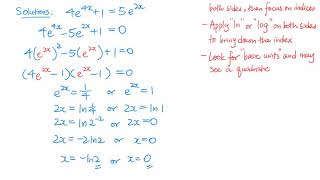 Solutions: 4e^{4x}+1 = 5e^{2x}
4e^{4x} - 5e^{2x} + 1 = 0
4(e^{2x})^2 - 5(e^{2x}) + 1 = 0
(4e^{2x} - 1)(e^{2x} - 1) = 0
e^{2x} = 1/4 or e^{2x} = 1
2x = ln 1/4 or 2x = ln 1
2x = ln 2^{-2} or 2x = 0
2x = -2 ln 2 or x = 0
x = -ln 2 or x = 0
both sides, then focus on indices
- Apply "ln" or "log" on both sides
to bring down the index
- Look for "basic units" and may
see a quadratic